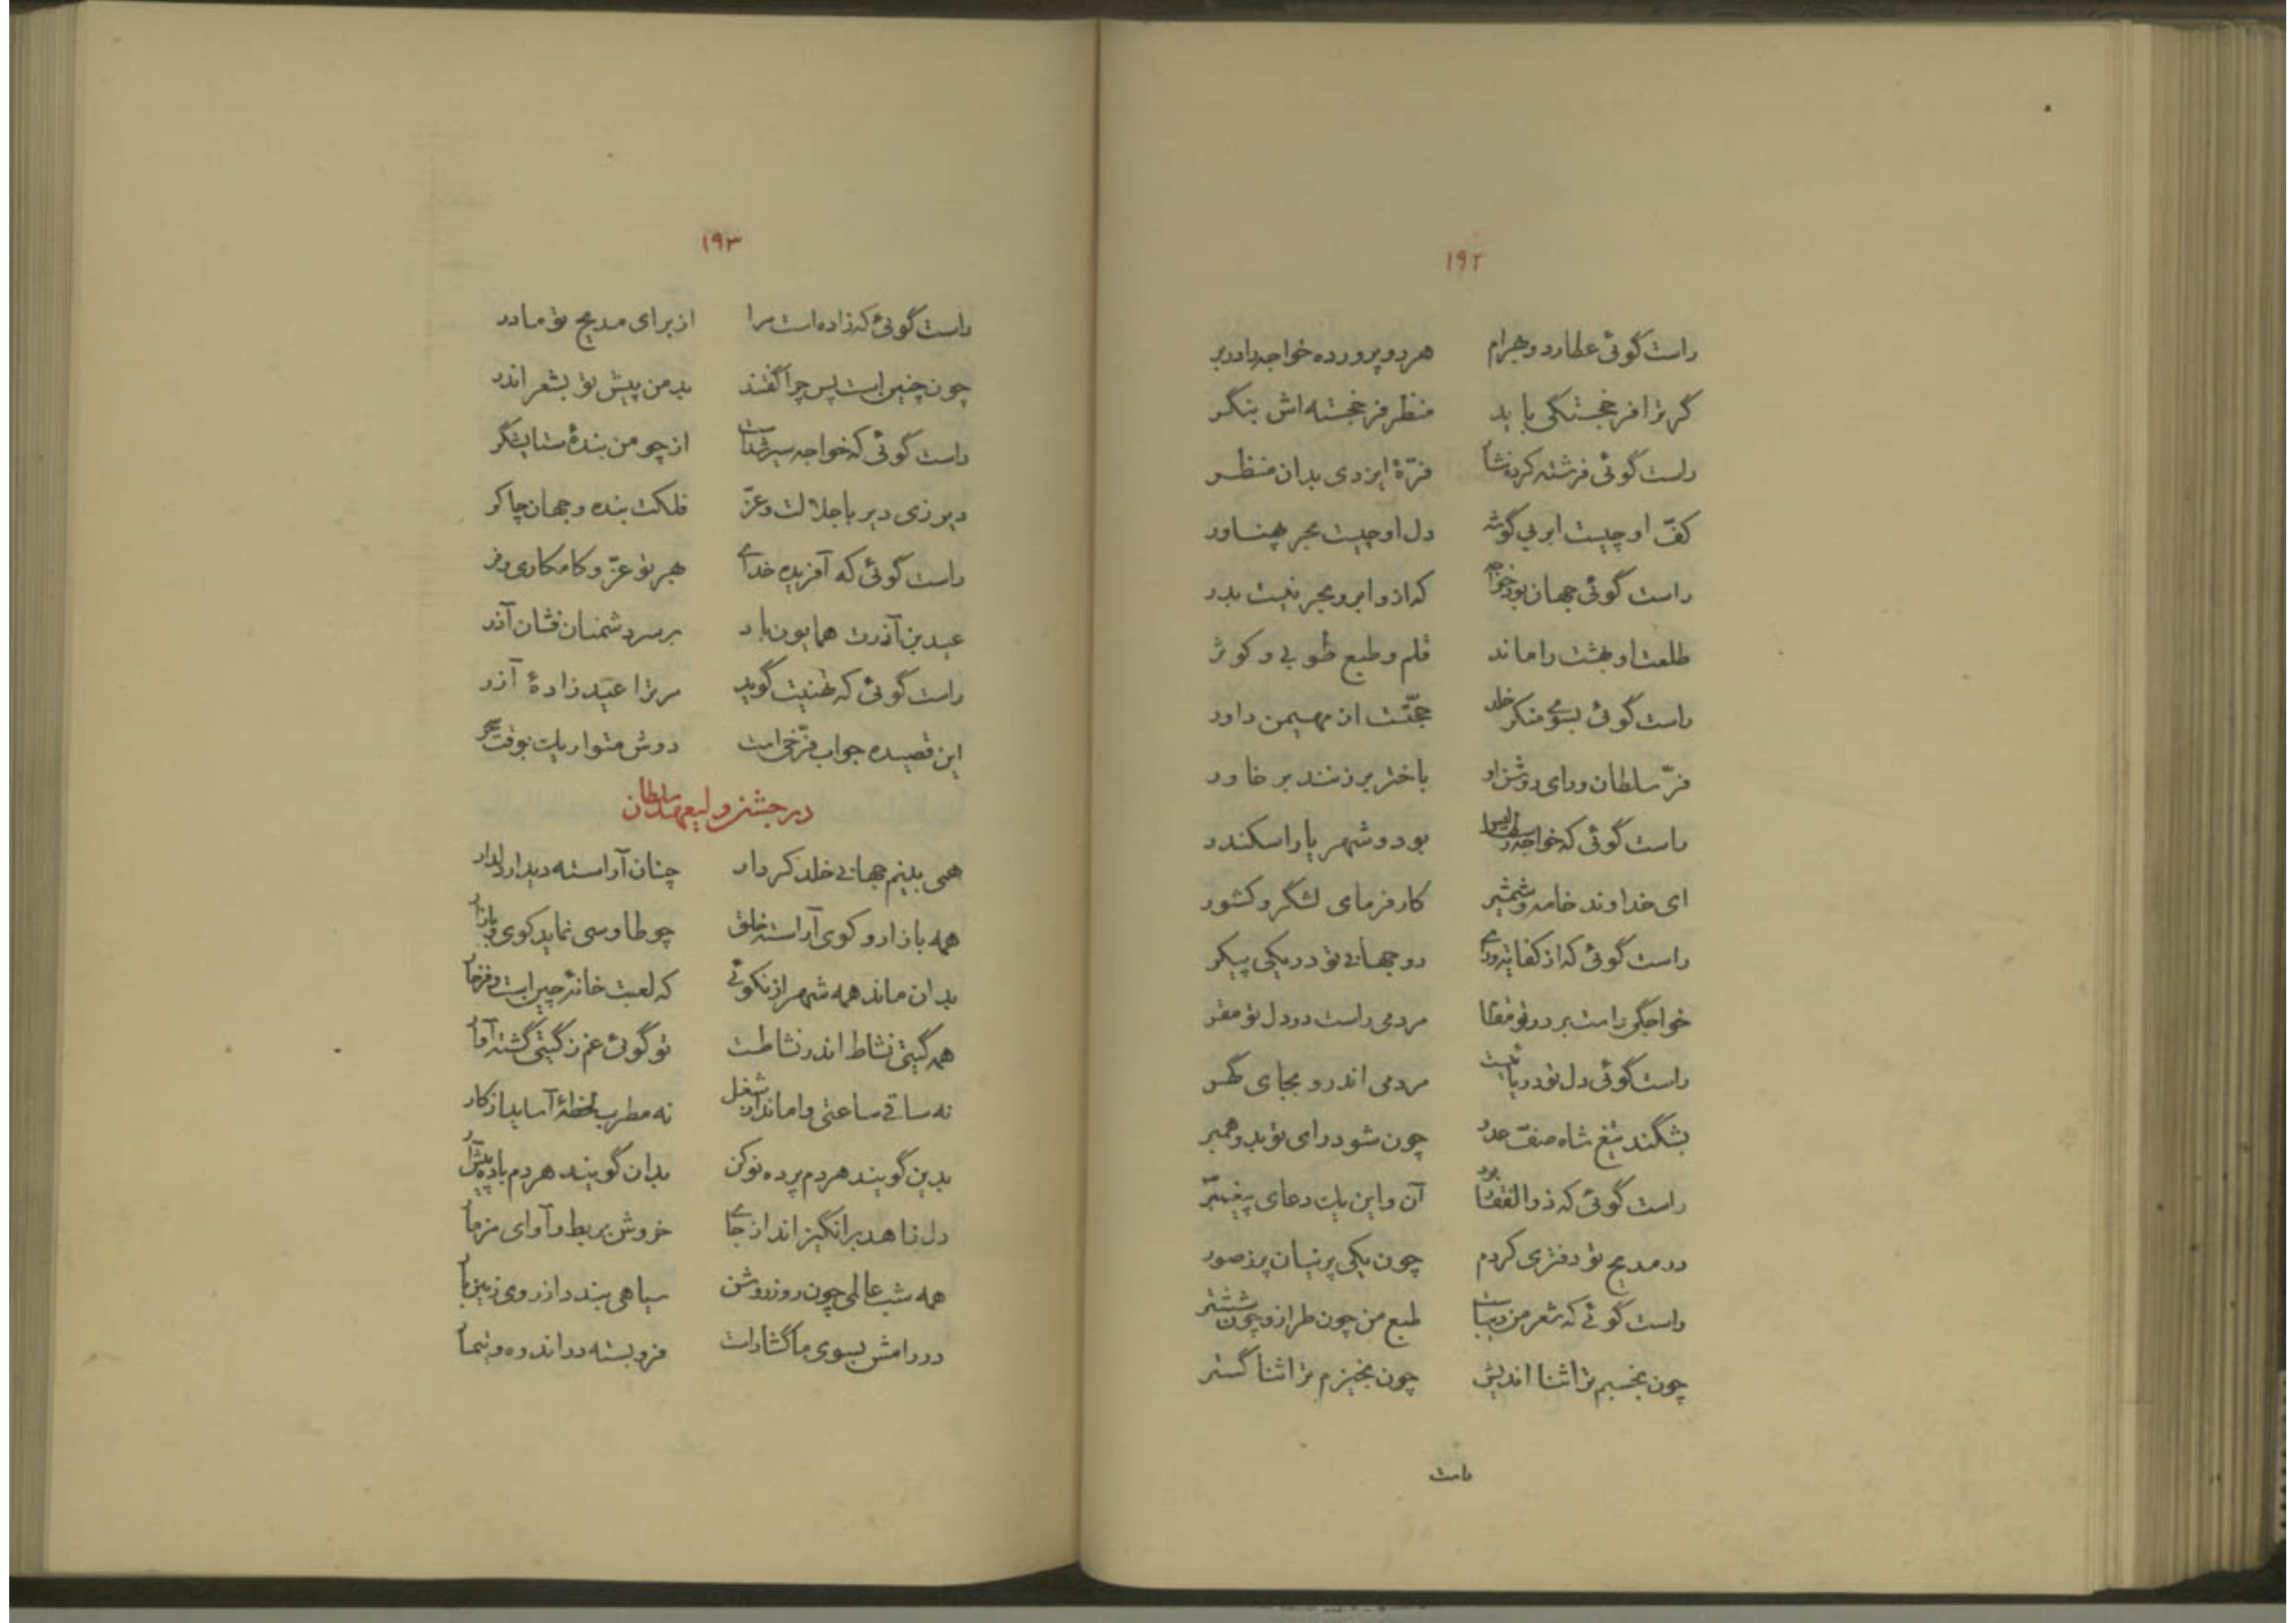 ۱۹۲
راست گوئی عطارد و بهرام هر دو پرورده خواجه را در بر
گر ترا فر خجستگی باید منظر فر خجسته اش بنگر
راست گوئی فرشته کرد نشا فرّهٔ ایزدی بدان منظر
کفّ او چیست ابر بی گوشه دل او چیست بحر پهناور
راست گوئی جهان بود خواجه که ازو ابر و بحر نیست بدر
طلعت او بهشت را ماند قلم و طبع طوبی و کوثر
راست گوئی بسوی منکر خلد حجّتست از مهیمن داور
فرّ سلطان و رای روشن او باختر برزنند بر خاور
راست گوئی که خواجه رسطالیس بود و شهریار اسکندر
ای خداوند خامه و شمشیر کارفرمای لشگر و کشور
راست گوئی که از کفایت و رای دو جهانی تو در یکی پیکر
خواجگی راست بر در تو مقام مردمی راست در دل تو مقر
راست گوئی دل تو دریائیست مردمی اندرو بجای گهر
بشکند تیغ شاه صفّ عدو چون شود رای تو بدو همبر
راست گوئی که ذوالفقار بود آن و این یک دعای پیغمبر
در مدیح تو دفتری کردم چون یکی پرنیان پر ز صور
راست گوئی که شعر من دیباست طبع من چون طراز و چون ششتر
چون بخسبم ترا ثنا اندیش چون بخیزم ترا ثنا گستر
راست
۱۹۳
راست گوئی که زاده است مرا از برای مدیح تو مادر
چون چنین است پس چرا گفتند بد من پیش تو بشعر اندر
راست گوئی که خواجه سیر شدست از چو من بندهٔ ستایشگر
دیر زی دیر با جلالت و عزّ فلکت بنده و جهان چاکر
راست گوئی که آفریده خدای بهر تو عزّ و کامکاری و فر
عید بن آذرت همایون باد بر سر دشمنان فشان آذر
راست گوئی که تهنیت گوید مر ترا عید زادهٔ آذر
این قصیده جواب فرّخی است دوش متواریک بوقت سحر
در جشن ولیعهد سلطان
همی بینم جهانی خلد کردار چنان آراسته دیدار دلدار
همه بازار و کوی آراسته خلق چو طاوسی نماید کوی و بازار
بدان ماند همه شهر از نکوئی که لعبت خانهٔ چین است و فرخار
همه گیتی نشاط اندر نشاطست تو گوئی غم ز گیتی گشته آوار
نه ساقی ساعتی واماند از شغل نه مطرب لحظهٔ آساید از کار
بدین گویند هر دم پرده نو کن بدان گویند هر دم باده پیش آر
دل زاهد برانگیزاند از جای خروش بربط و آوای مزمار
همه شب عالمی چون روز روشن سیاهی بندد از روی زمین بار
در رامش بسوی ما گشادست فرو بسته در اندوه و تیمار